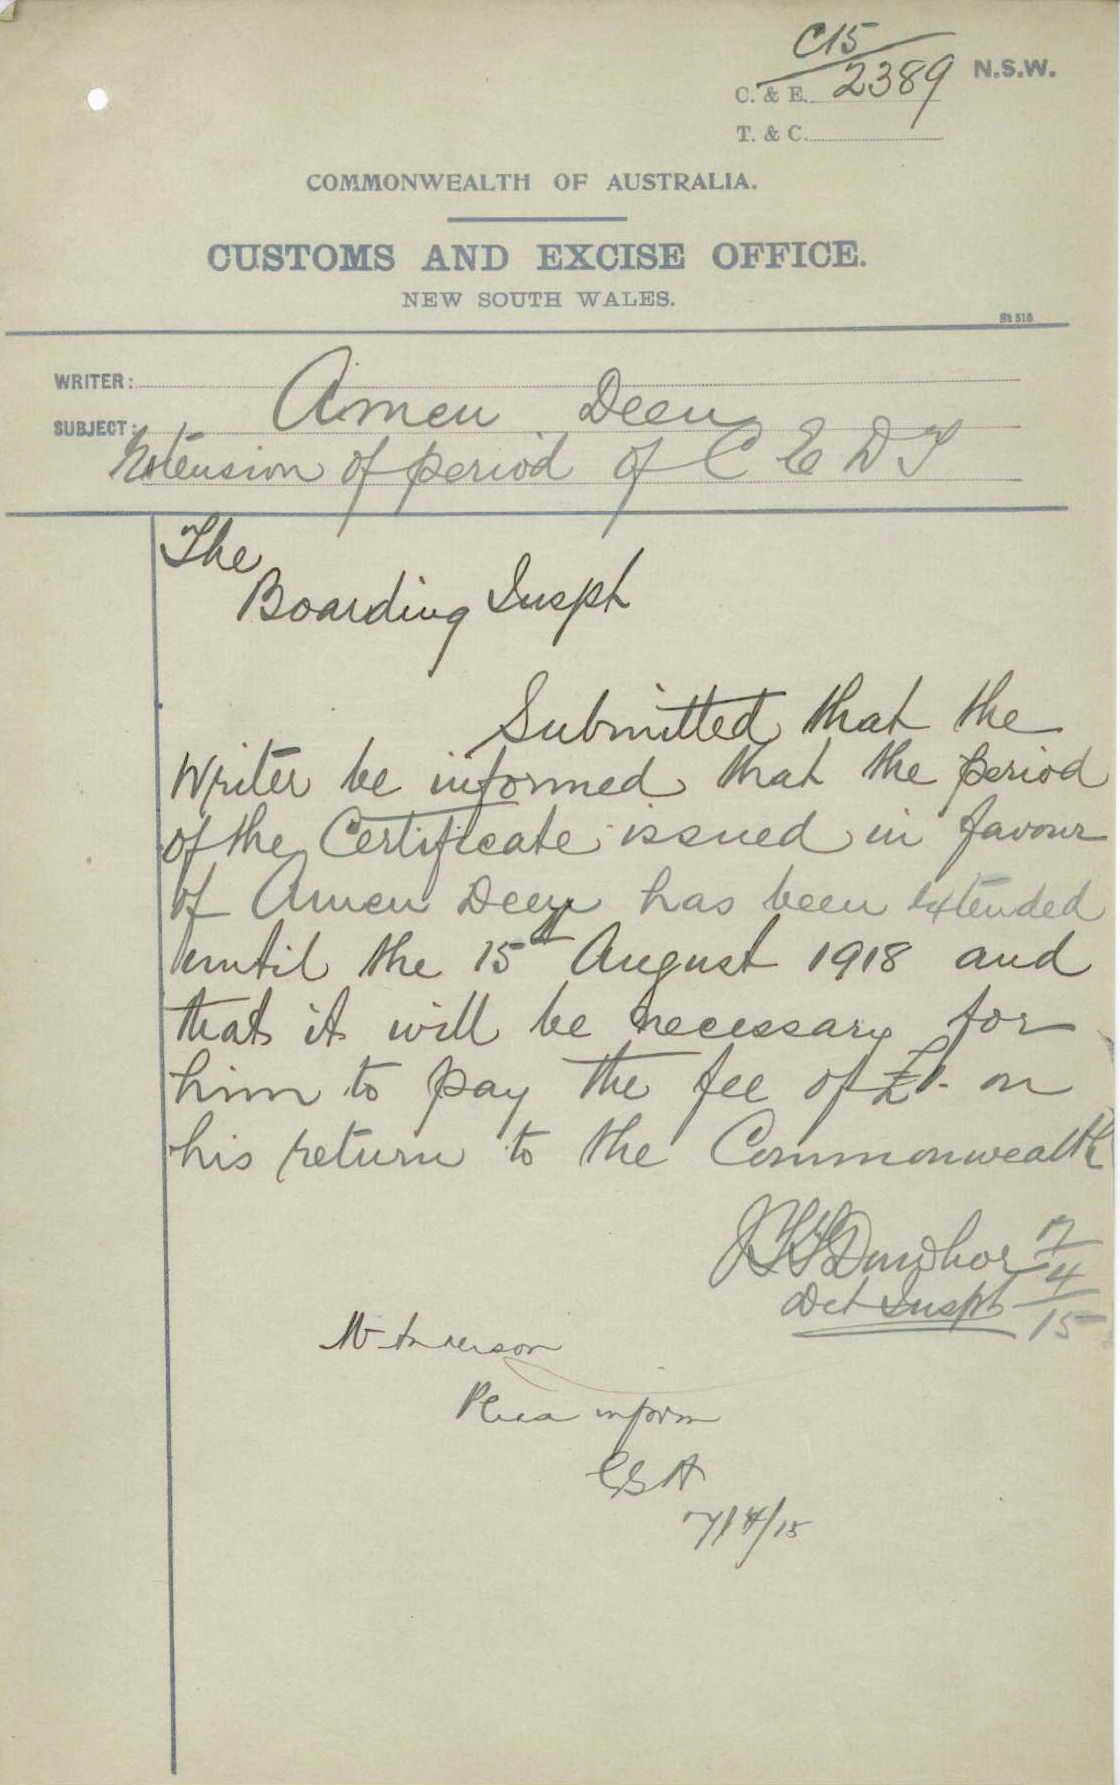 C15
C. & E. 2389 N.S.W.
T. & C.
COMMONWEALTH OF AUSTRALIA.
CUSTOMS AND EXCISE OFFICE.
NEW SOUTH WALES.
St 516
WRITER:
SUBJECT: Amen Deen
Extension of period of C E D T
The
Boarding Inspr
Submitted that the
Writer be informed that the period
of the Certificate issued in favour
of Amen Deen has been extended
until the 15th August 1918 and
that it will be necessary for
him to pay the fee of £1. on
his return to the Commonwealth
7
4
15
Det Inspr
Mr Anderson
Please inform
7/4/15